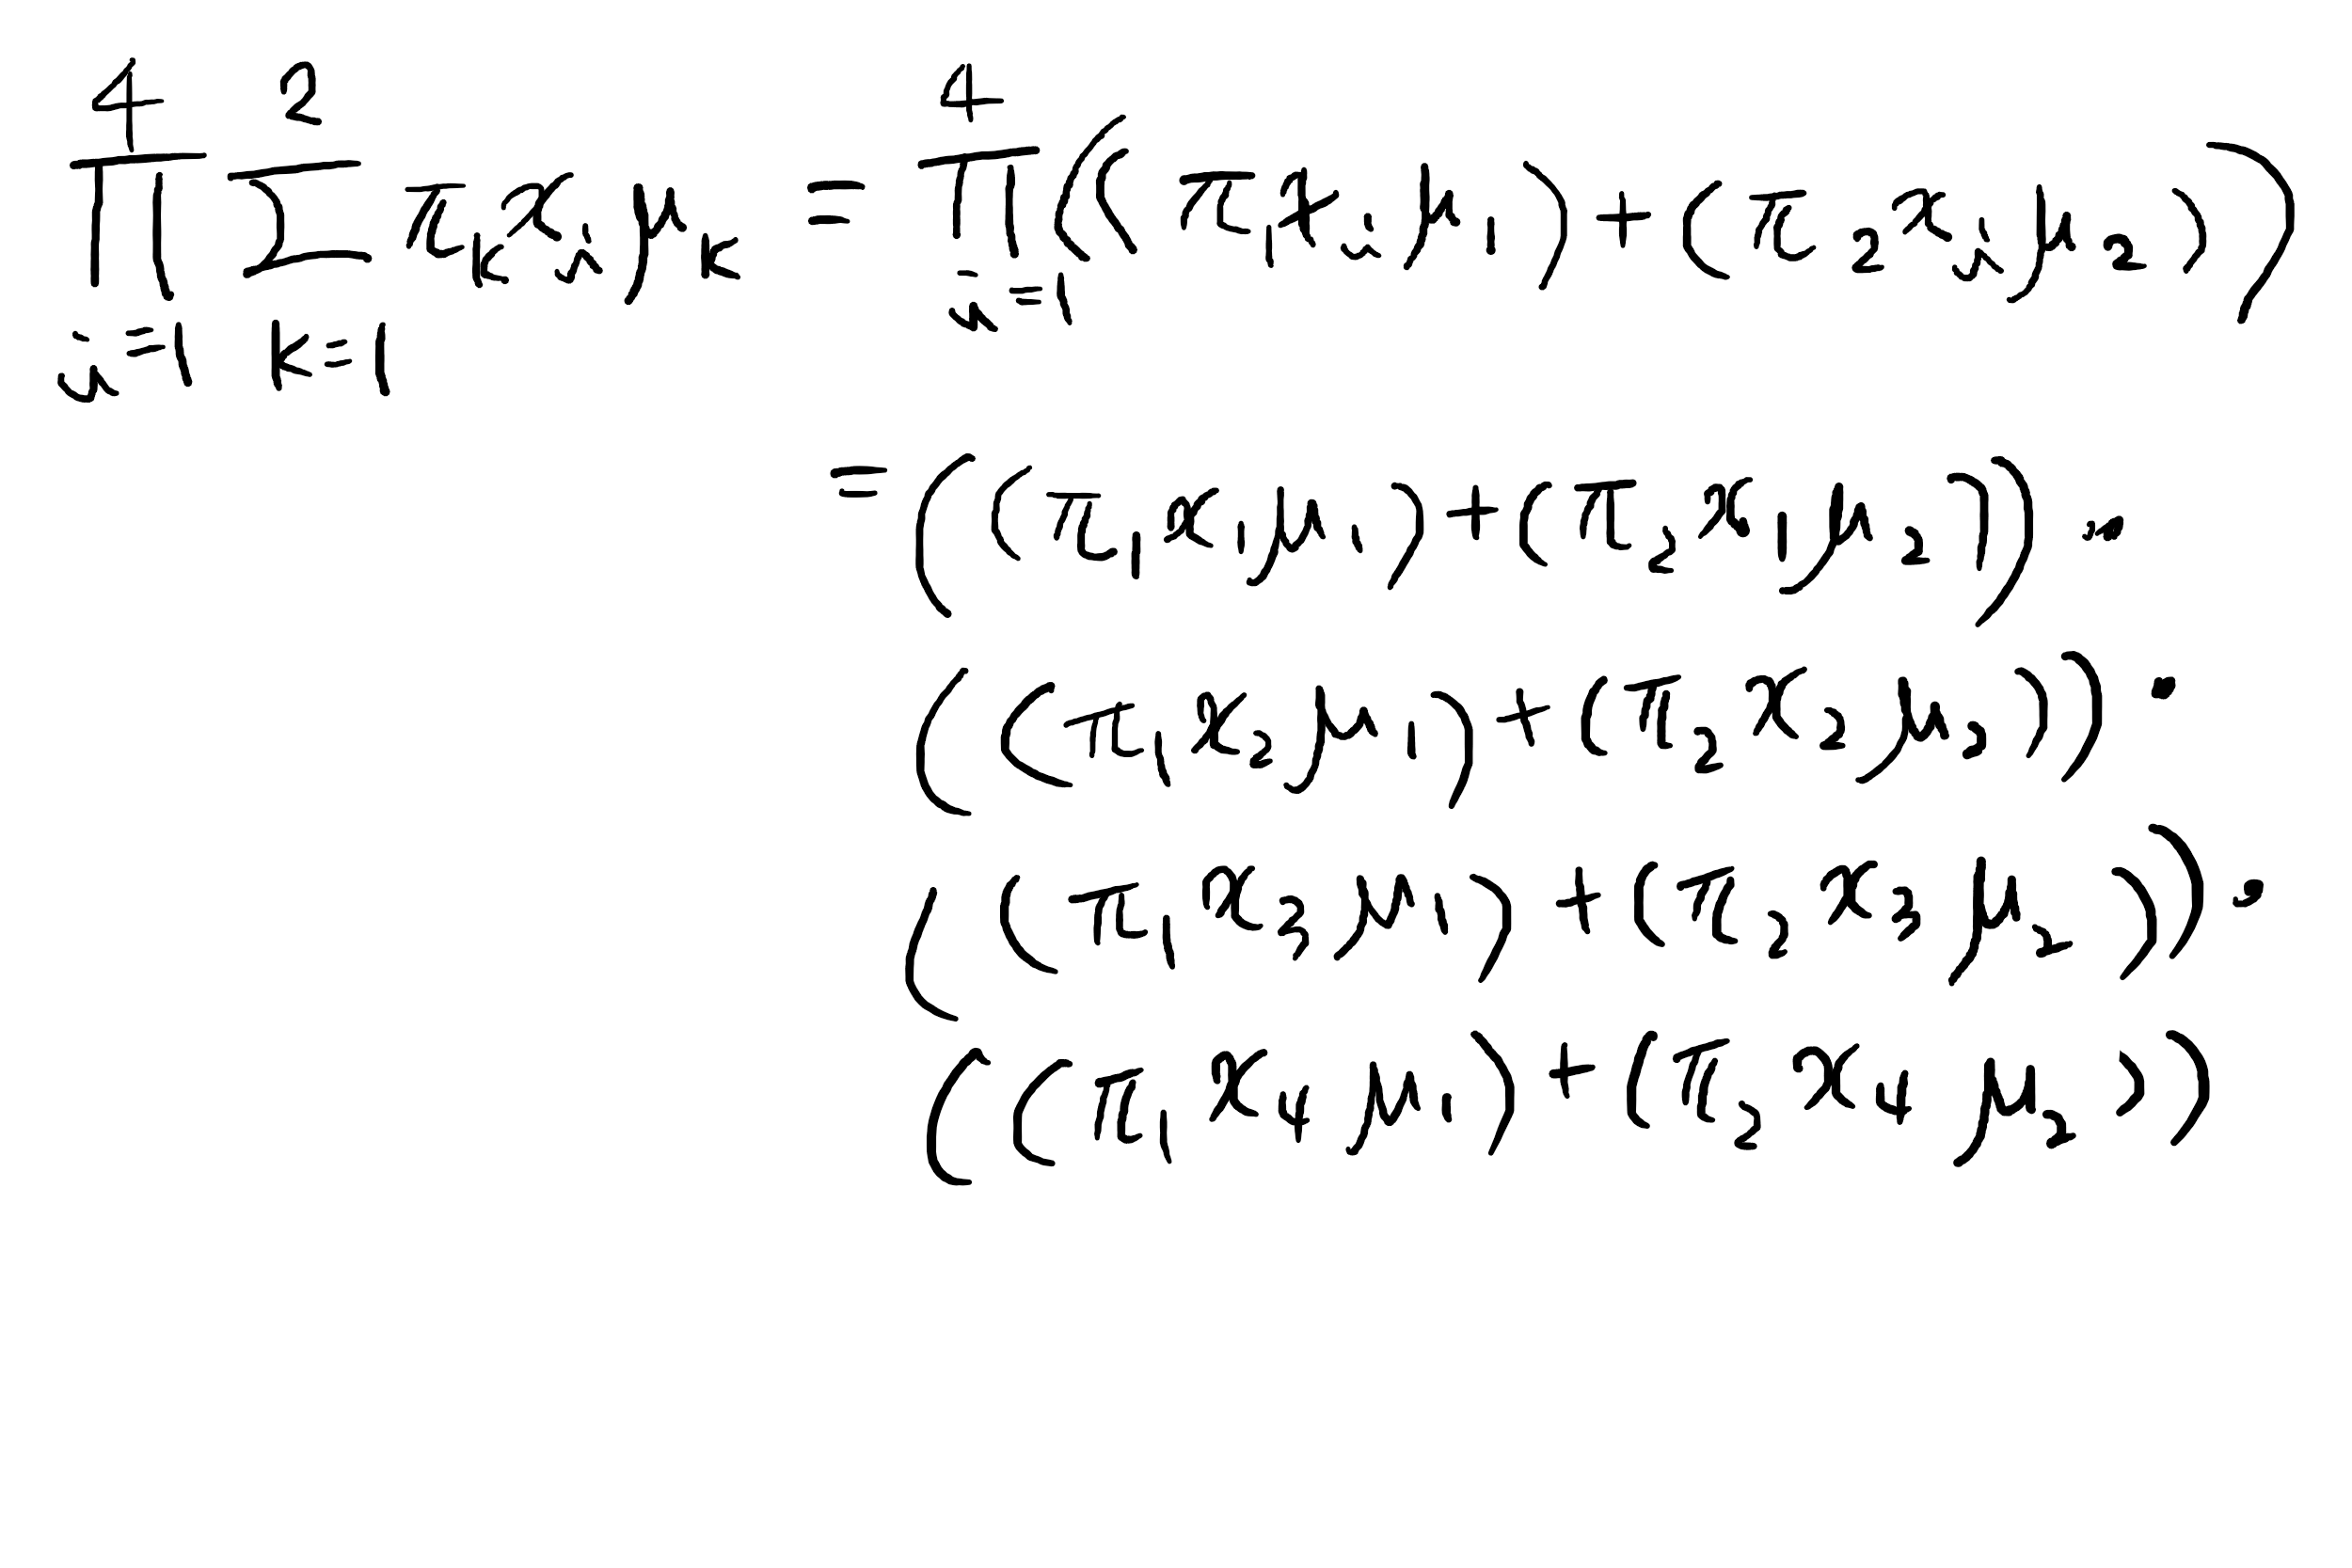 $\prod_{i=1}^{4} \sum_{k=1}^{2} \pi_k x_i \mu_k = \prod_{i=1}^{4} \left( (\pi_1 x_i \mu_1) + (\pi_2 x_i \mu_2) \right)$
$= \left( (\pi_1 x_1 \mu_1) + (\pi_2 x_1 \mu_2) \right) \cdot$
$\left( (\pi_1 x_2 \mu_1) + (\pi_2 x_2 \mu_2) \right) \cdot$
$\left( (\pi_1 x_3 \mu_1) + (\pi_2 x_3 \mu_2) \right) \cdot$
$\left( (\pi_1 x_4 \mu_1) + (\pi_2 x_4 \mu_2) \right)$